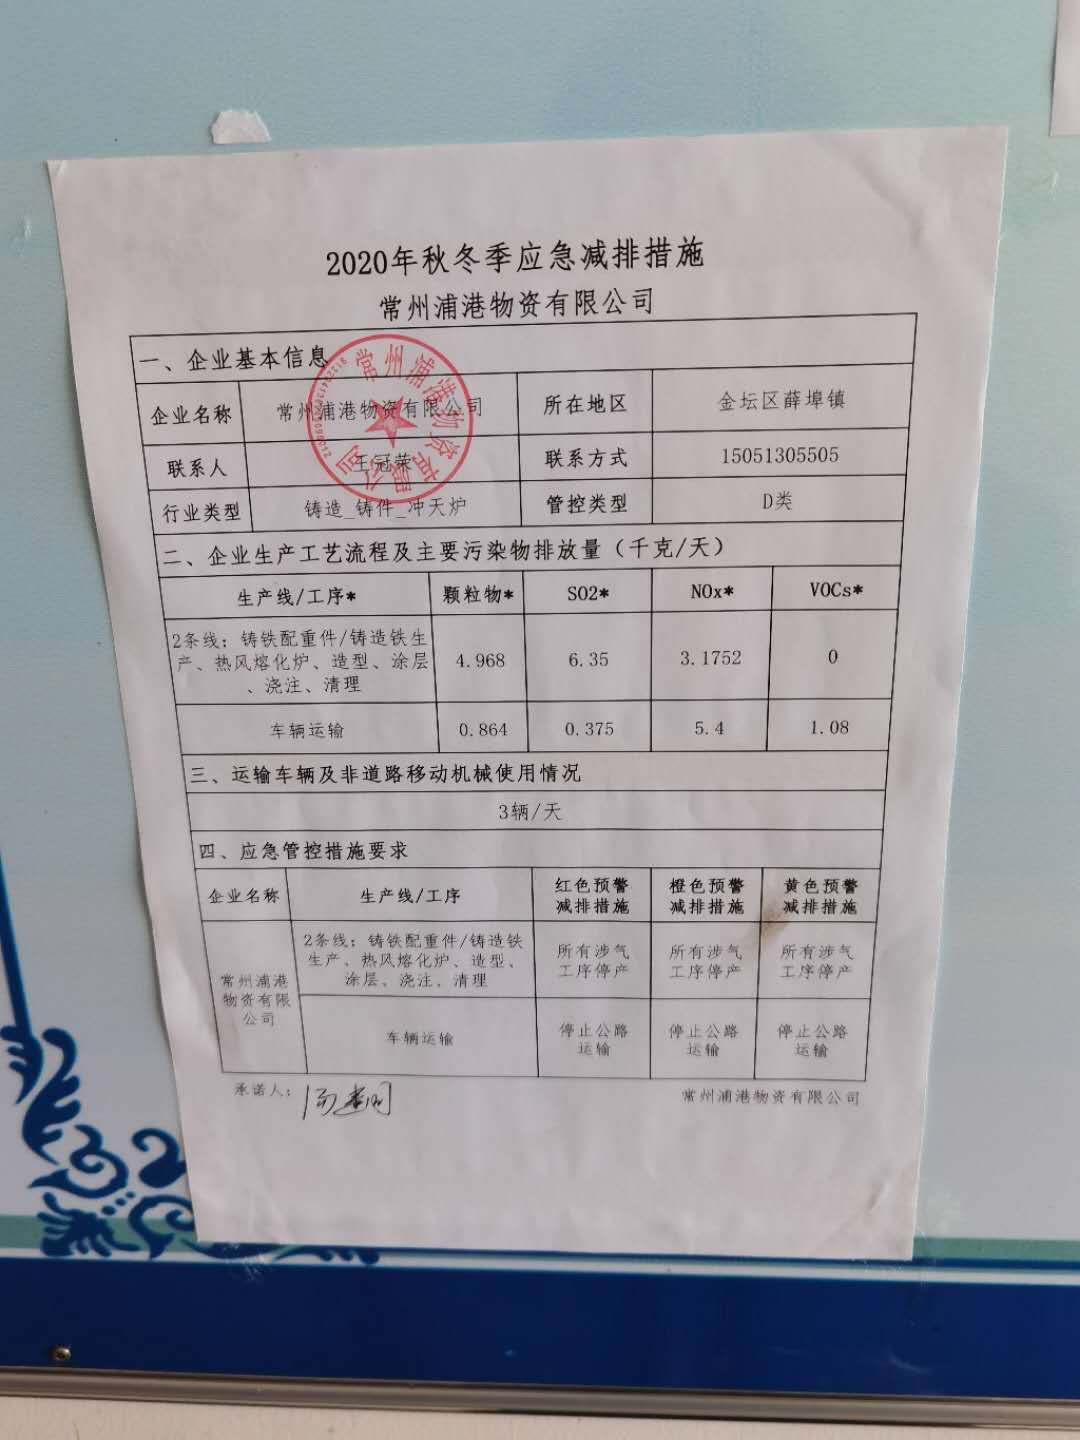 2020年秋冬季应急减排措施
常州浦港物资有限公司
一、企业基本信息
企业名称 常州浦港物资有限公司 所在地区 金坛区薛埠镇
联系人 王冠荣 联系方式 15051305505
行业类型 铸造_铸件_冲天炉 管控类型 D类
二、企业生产工艺流程及主要污染物排放量（千克/天）
生产线/工序* 颗粒物* SO2* NOx* VOCs*
2条线；铸铁配重件/铸造铁生
产、热风熔化炉、造型、涂层
、浇注、清理
4.968 6.35 3.1752 0
车辆运输 0.864 0.375 5.4 1.08
三、运输车辆及非道路移动机械使用情况
3辆/天
四、应急管控措施要求
企业名称 生产线/工序
红色预警
减排措施
橙色预警
减排措施
黄色预警
减排措施
常州浦港
物资有限
公司
2条线；铸铁配重件/铸造铁
生产、热风熔化炉、造型、
涂层、浇注、清理
所有涉气
工序停产
所有涉气
工序停产
所有涉气
工序停产
车辆运输
停止公路
运输
停止公路
运输
停止公路
运输
承诺人：
常州浦港物资有限公司
常州浦港物资有限公司